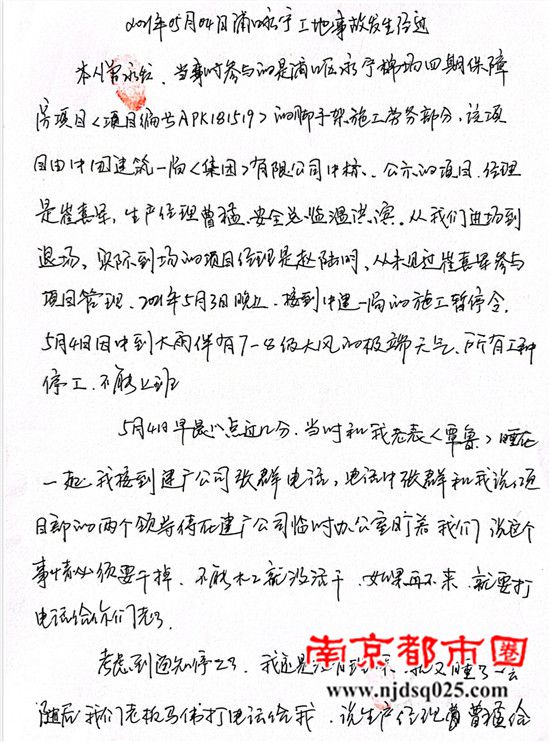 2021年05月04日浦口永宁工地事故发生经过
本人曾永红、当事时参与的是浦口区永宁棉场四期保障
房项目<项目编号APK181519>的脚手架施工劳务部分,该项
目由中国建筑一局<集团>有限公司中标、公示的项目经理
是崔喜军,生产经理曹猛、安全总监温洪滨。从我们进场到
退场,实际到场的项目经理是赵陆明,从未见过崔喜军参与
项目管理、2021年5月3日晚上、接到中建一局的施工暂停令。
5月4日因中到大雨伴有7-8级大风的极端天气、所有工种
停工、不能上班
5月4日早晨八点近几分、当时和我老表<覃鲁>睡在
一起我接到建广公司张群电话,电话中张群和我说项
目部的两个领导待在建广公司临时办公室盯着我们说这个
事情必须要干掉、不能木工就没活干、如果再不来、就要打
电话给你们老了、
考虑到通知停工了、我还是没有理 又睡了一会
随后我们老板马伟打电话给我、说生产经理曹猛给
南京都市圈
www.njdsq025.com